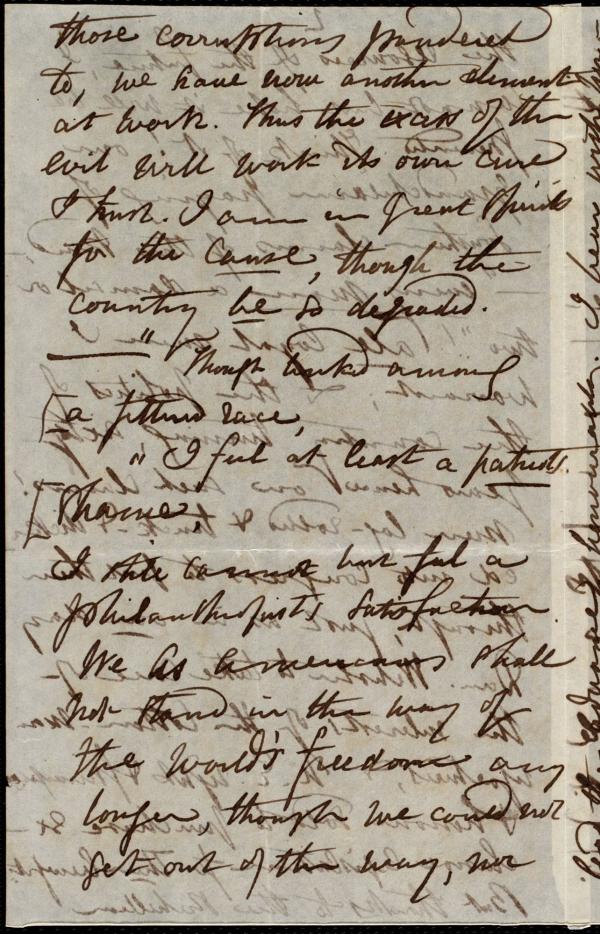 those corruptions pandered
to, we have now another element
at work. Thus the excess of the
evil will work its own cure
I trust. I am in great spirits
for the cause, though the
country be so degraded.
" Though linked among
[a fettered race,
" I feel at least a patriot's
[shame,
I still cannot but feel a
philanthropist's satisfaction
We as Americans shall
not stand in the way of
the world's freedom any
longer though we could not
get out of the way, nor